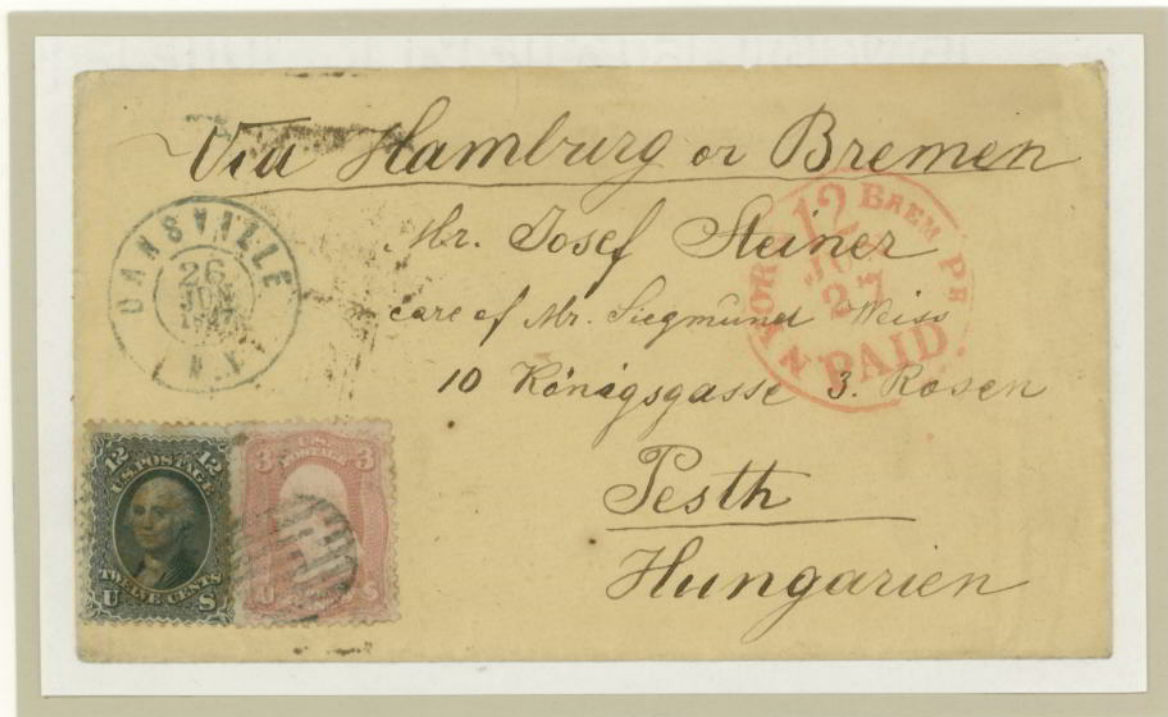 Via Hamburg or Bremen
Mr. Josef Steiner
care of Mr. Siegmund Weiss
10 Königsgasse 3. Rosen
Pesth
Hungarien
DANSVILLE
26
JUN
N.Y.
N YORK 12 BREM PK
27
PAID
12 12
U.S. POSTAGE
TWELVE CENTS
U S
3 3
U.S.
POSTAGE
U S